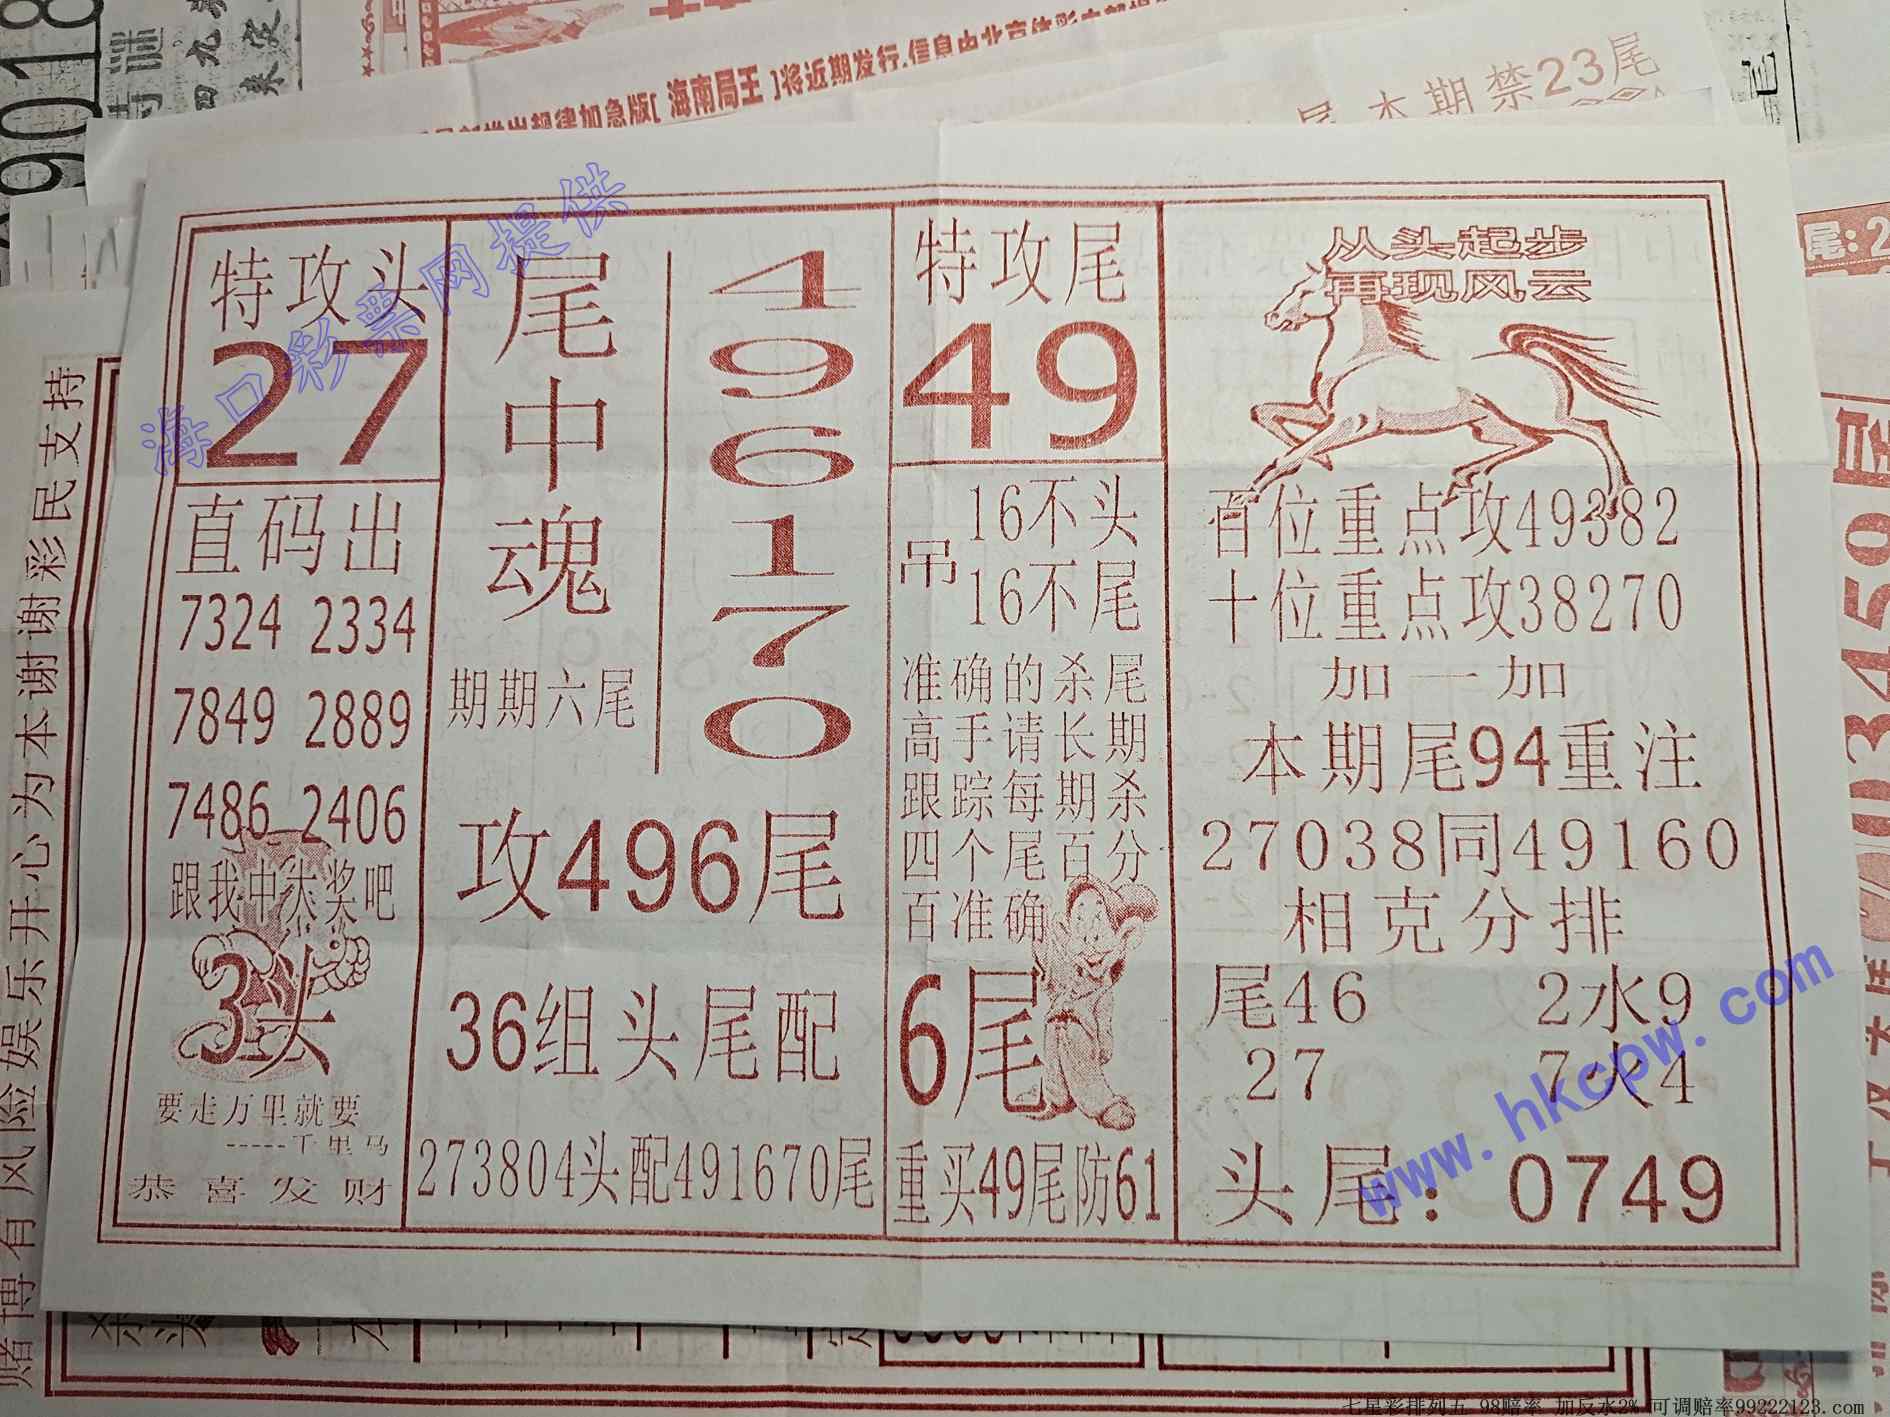 特攻头
27
直码出
7324 2334
7849 2889
7486 2406
跟我中大奖吧
3头
要走万里就要
-----千里马
恭喜发财
尾中魂
4
9
6
1
7
0
期期六尾
攻496尾
36组头尾配
273804头配491670尾
特攻尾
49
吊
16不头
16不尾
准确的杀尾
高手请长期
跟踪每期杀
四个尾百分
百准确
6尾
重买49尾防61
从头起步
再现风云
百位重点攻49382
十位重点攻38270
加一加
本期尾94重注
27038同49160
相克分排
尾46 2水9
27 7火4
头尾：0749
海口彩票网提供
www.hkcpw.com
加急版[海南局王]将近期发行.信息由北京体彩
尾本期禁23尾
赌博有风险娱乐开心为本谢谢彩民支持
9018
尾:2
03459尾
七星彩排列五 98赔率 加反水2% 可调赔率99222123.com